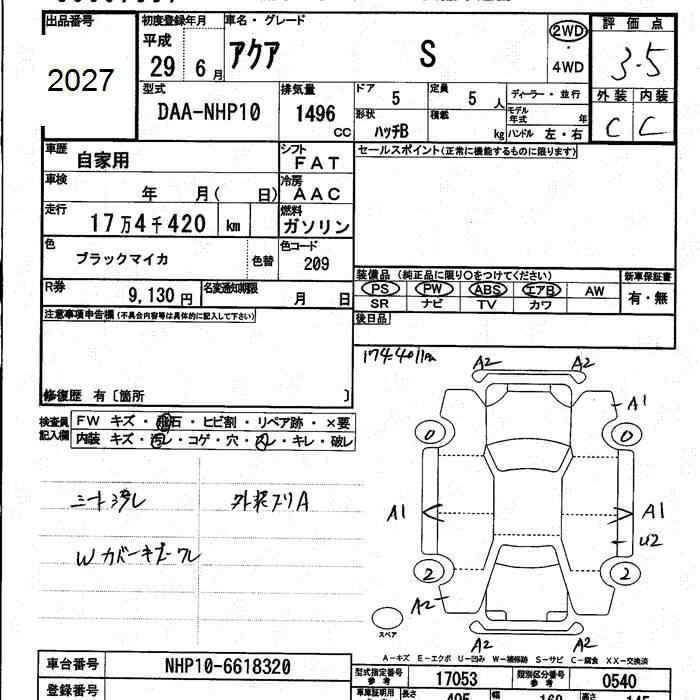 出品番号 初度登録年月 車名・グレード 評価点
2027 平成 29 6月 アクア S 2WD ・ 4WD 3.5
型式 排気量 ドア 定員 ディーラー・並行 外装 内装
DAA-NHP10 1496 CC 5 5人 モデル年式 年 C C
形状 ハッチB 積載 kg ハンドル 左・右
車歴 自家用 シフト FAT セールスポイント(正常に機能するものに限ります)
車検 年 月( 日) 冷房 AAC
走行 17万4千420 km 燃料 ガソリン
色 ブラックマイカ 色替 色コード 209
装備品 (純正品に限り○をつけてください) 新車保証書
R券 9,130円 名変通知期限 月 日 PS PW ABS エアB AW 有・無
SR ナビ TV カワ
注意事項申告欄(不具合内容等は具体的に記入して下さい) 後日品
174.401km
修復歴 有〔箇所 〕
検査員記入欄 FW キズ・飛石・ヒビ割・リペア跡・×要
内装 キズ・汚レ・コゲ・穴・スレ・キレ・破レ
A2 A2
A1
0 0
シート汚レ 外装ブリA
A1 A1
U2
Wカバーキズ・ワレ
2 2
A2
スペア
A2 A2
A-キズ E-エクボ U-凹み W-補修跡 S-サビ C-腐食 XX-交換済
車台番号 NHP10-6618320
型式指定番号 参考 17053 類別区分番号 参考 0540
登録番号
車庫証明用 長さ 幅 高さ